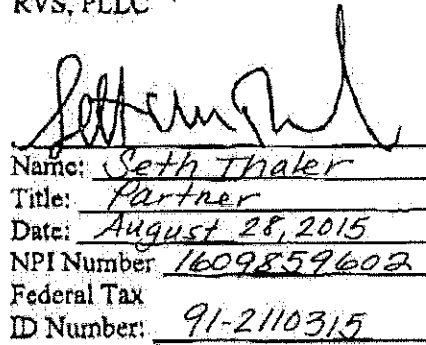 RVS, PLLC
Name: Seth Thaler
Title: Partner
Date: August 28, 2015
NPI Number 1609859602
Federal Tax
ID Number: 91-2110315